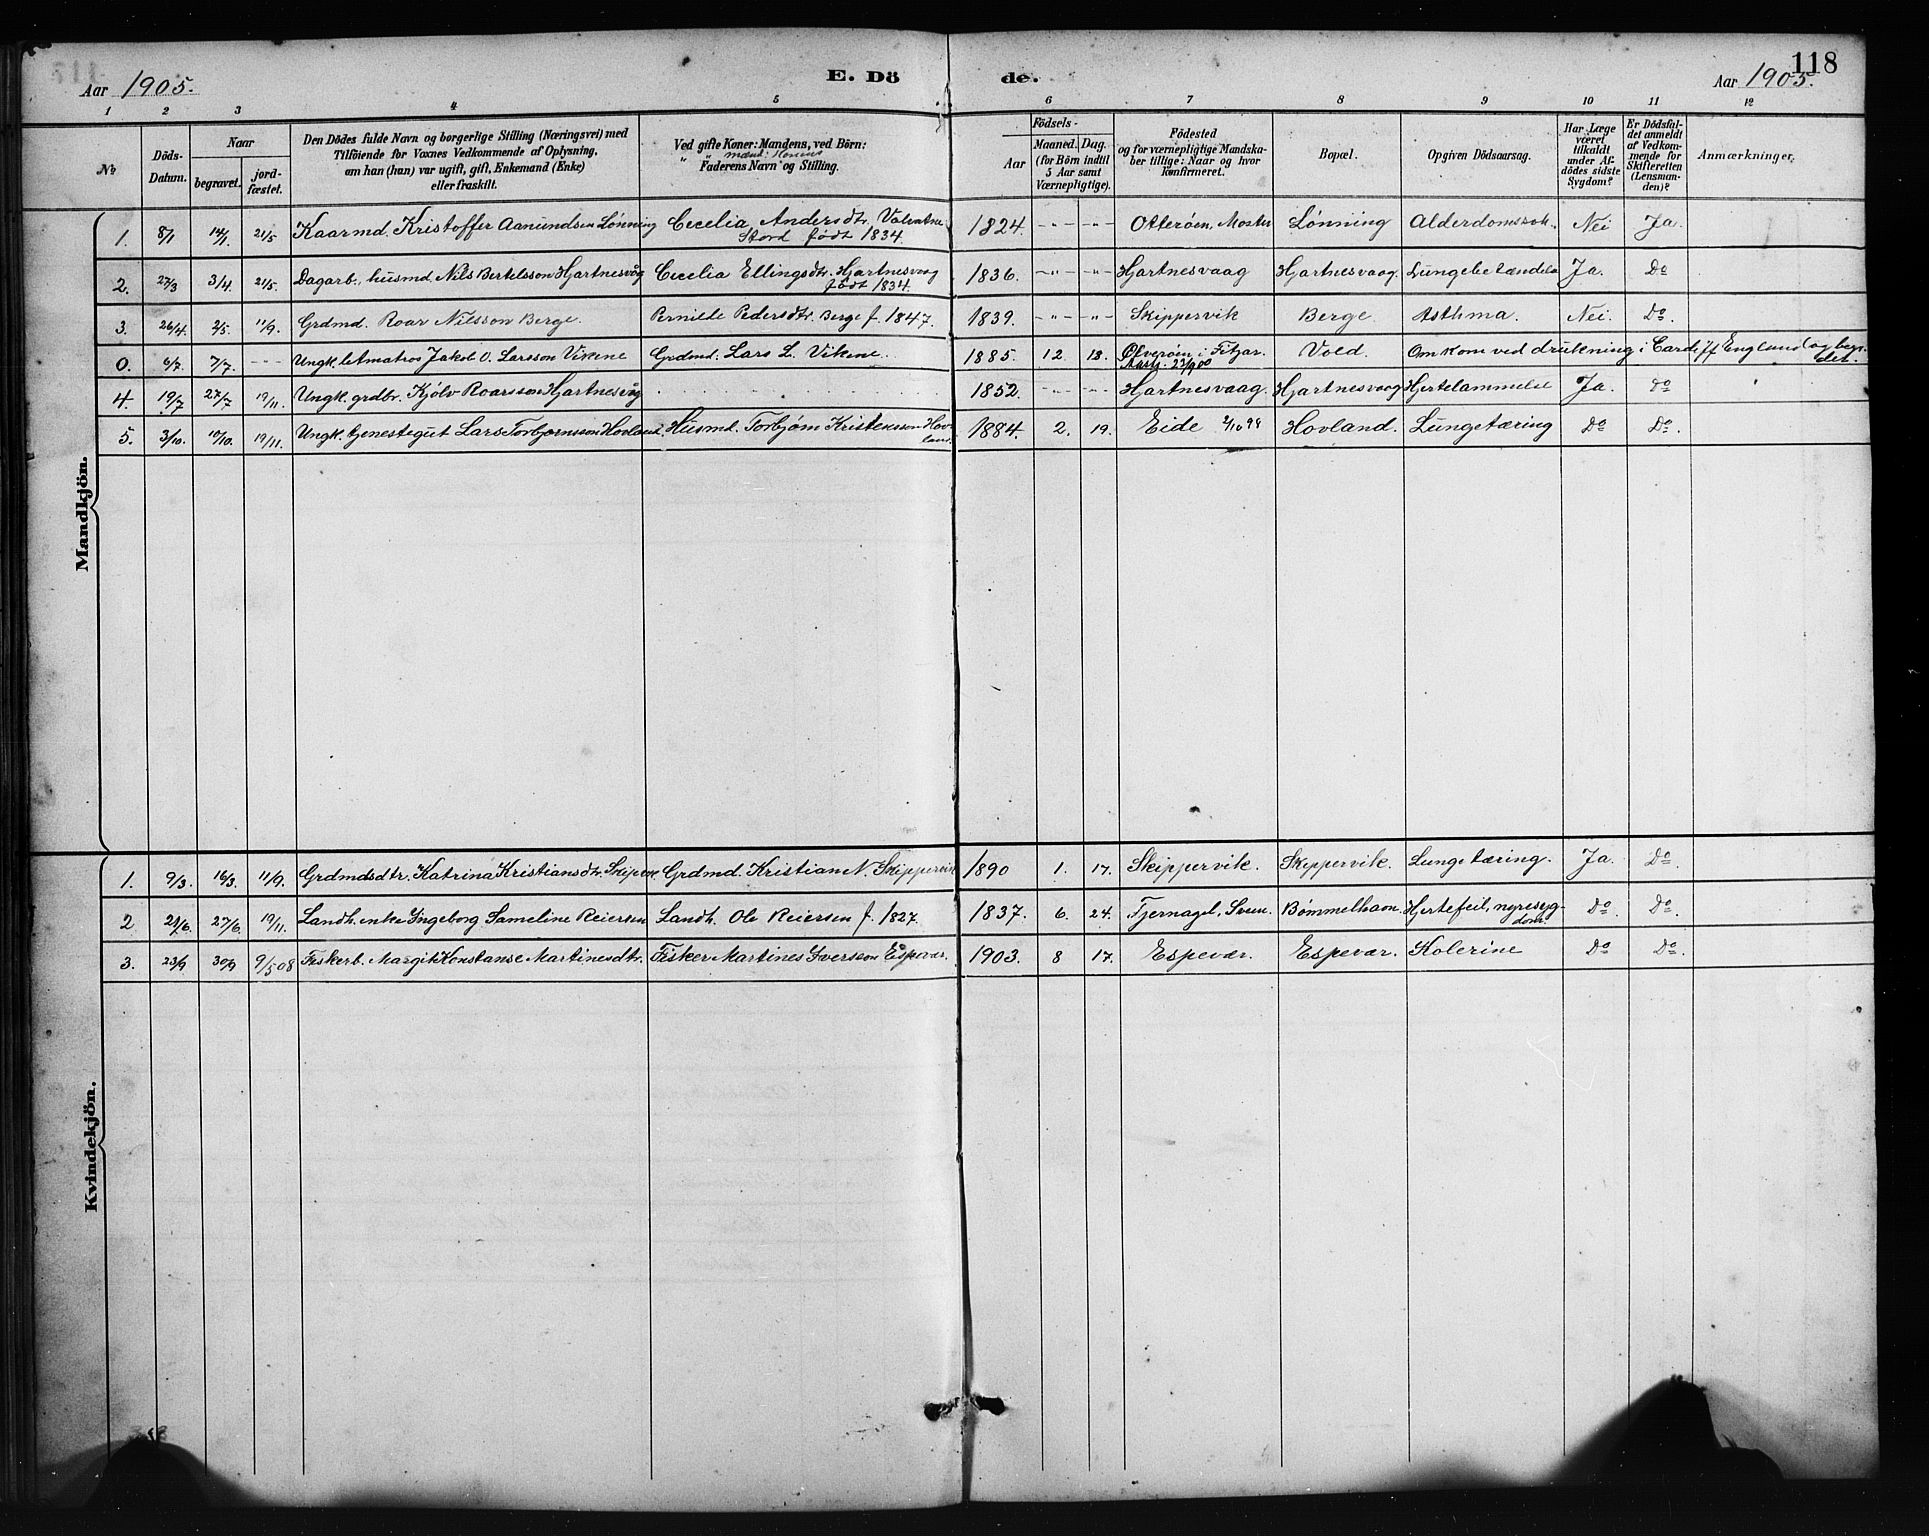 118
Aar 1905.
E. Dö
de.
Aar 1905.
1 2 3 4 5 6 7 8 9 10 11 12
№
Döds-Datum.
Naar
begravet.
jord-fæstet.
Den Dödes fulde Navn og borgerlige Stilling (Næringsvei) med
Tilföiende for Voxnes Vedkommende af Oplysning,
om han (hun) var ugift, gift, Enkemand (Enke)
eller fraskilt.
Ved gifte Koner: Mandens, ved Börn:
" " mænd: Konens
Faderens Navn og Stilling.
Födsels-
Aar
Maaned. Dag.
(for Börn indtil
5 Aar samt
Værnepligtige).
Födested
og for værnepligtige Mandska-
ber tillige: Naar og hvor
konfirmeret.
Bopæl.
Opgiven Dödsaarsag.
Har Læge
været
tilkaldt
under Af-
dödes sidste
Sygdom?
Er Dödsfal-
det anmeldt
af Vedkom-
mende for
Skifteretten
(Lensman-
den)?
Anmærkninger.
Mandkjön.
1. 8/1 14/1. 21/5 Kaarmd. Kristoffer Aanundsen Lønning Cecelia Andersdtr. Valvatne Stord født 1834. 1824. -"- -"- Otterøen, Moster Lønning Alderdomssvk. Nei Ja.
2. 27/3 3/4. 21/5. Dagarb., husmd. Nils Bertelsson Hjartnesvåg Cecelia Ellingsdtr. Hjartnesvaag født 1834. 1836. -"- -"- Hjartnesvaag Hjartnesvaag. Lungebetændelse Ja. Do
3. 26/4. 2/5. 11/9. Grdmd. Roar Nilsson Berge. Pernille Pedersdtr. Berge f. 1847. 1839. -"- -"- Skippervik Berge. Asthma. Nei. Do.
0. 6/7. 7/7. - - - Ungk. letmatros Jakob O. Larsson Vikene Grdmd. Lars L. Vikene. 1885. 12. 13. Øfverøen i Fitjar. 23/9 00 Vold. Omkom ved drukning i Cardiff England og begr. der.
4. 19/7 27/7 19/11. Ungk. grdbr. Kjølv Roarsson Hjartnesvåg 1852. -"- -"- Hjartnesvaag. Hjartnesvaag Hjertelammelse Ja. do
5. 3/10. 10/10. 19/11. Ungk. tjenestegut Lars Torbjørnsson Hovland. Husmd. Torbjørn Kristensson Hovland. 1884. 2. 19. Eide 2/10 99 Hovland. Lungetæring Do Do.
Kvindekjön.
1. 9/3. 16/3. 11/9. Grdmdsdtr. Katrina Kristiansdtr. Skipevk. Grdmd. Kristian N. Skippervik 1890 1. 17. Skippervik. Skippervik. Lungetæring. Ja. Do
2 21/6. 27/6. 19/11. Landh. enke Ingeborg Sameline Reiersen Landh. Ole Reiersen f. 1827. 1837. 6. 24. Fjernagel, Sveen. Bømmelhavn. Hjertefeil, nyresygdom. Do. Do.
3. 23/9 30/9 9/5 08 Fiskerb. Margit Konstanse Martinesdtr. Fisker Martines Iversen Espevær. 1903. 8 17. Espevær. Espevær. Kolerine Do Do.